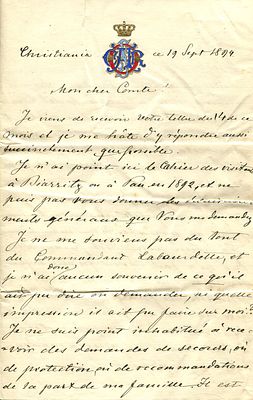 Christiania ce 19 Sept 1894
Mon cher Comte!
Je viens de recevoir Votre lettre du 14 de ce
mois et je me hâte d'y répondre aussi
succinctement que possible.
Je n'ai point ici le Cahier des visites
à Biarritz ou à Pau en 1892, et ne
puis pas Vous donner des
généraux que Vous me demandez
Je ne me souviens pas du tout
du Commandant et
je n'ai donc aucun souvenir de ce qu'il
ait pu dire ou demander, ni quelle
impression il ait pu faire sur moi.
Je ne suis point inhabitué à rece-
voir des demandes de secours, ou
de protection ou de recommandations
de la part de ma famille. Il est